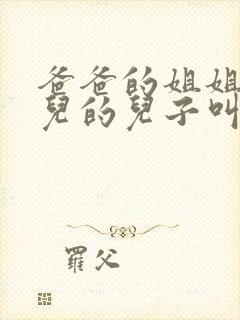 爸爸的姐姐
兒的兒子叫
羅父